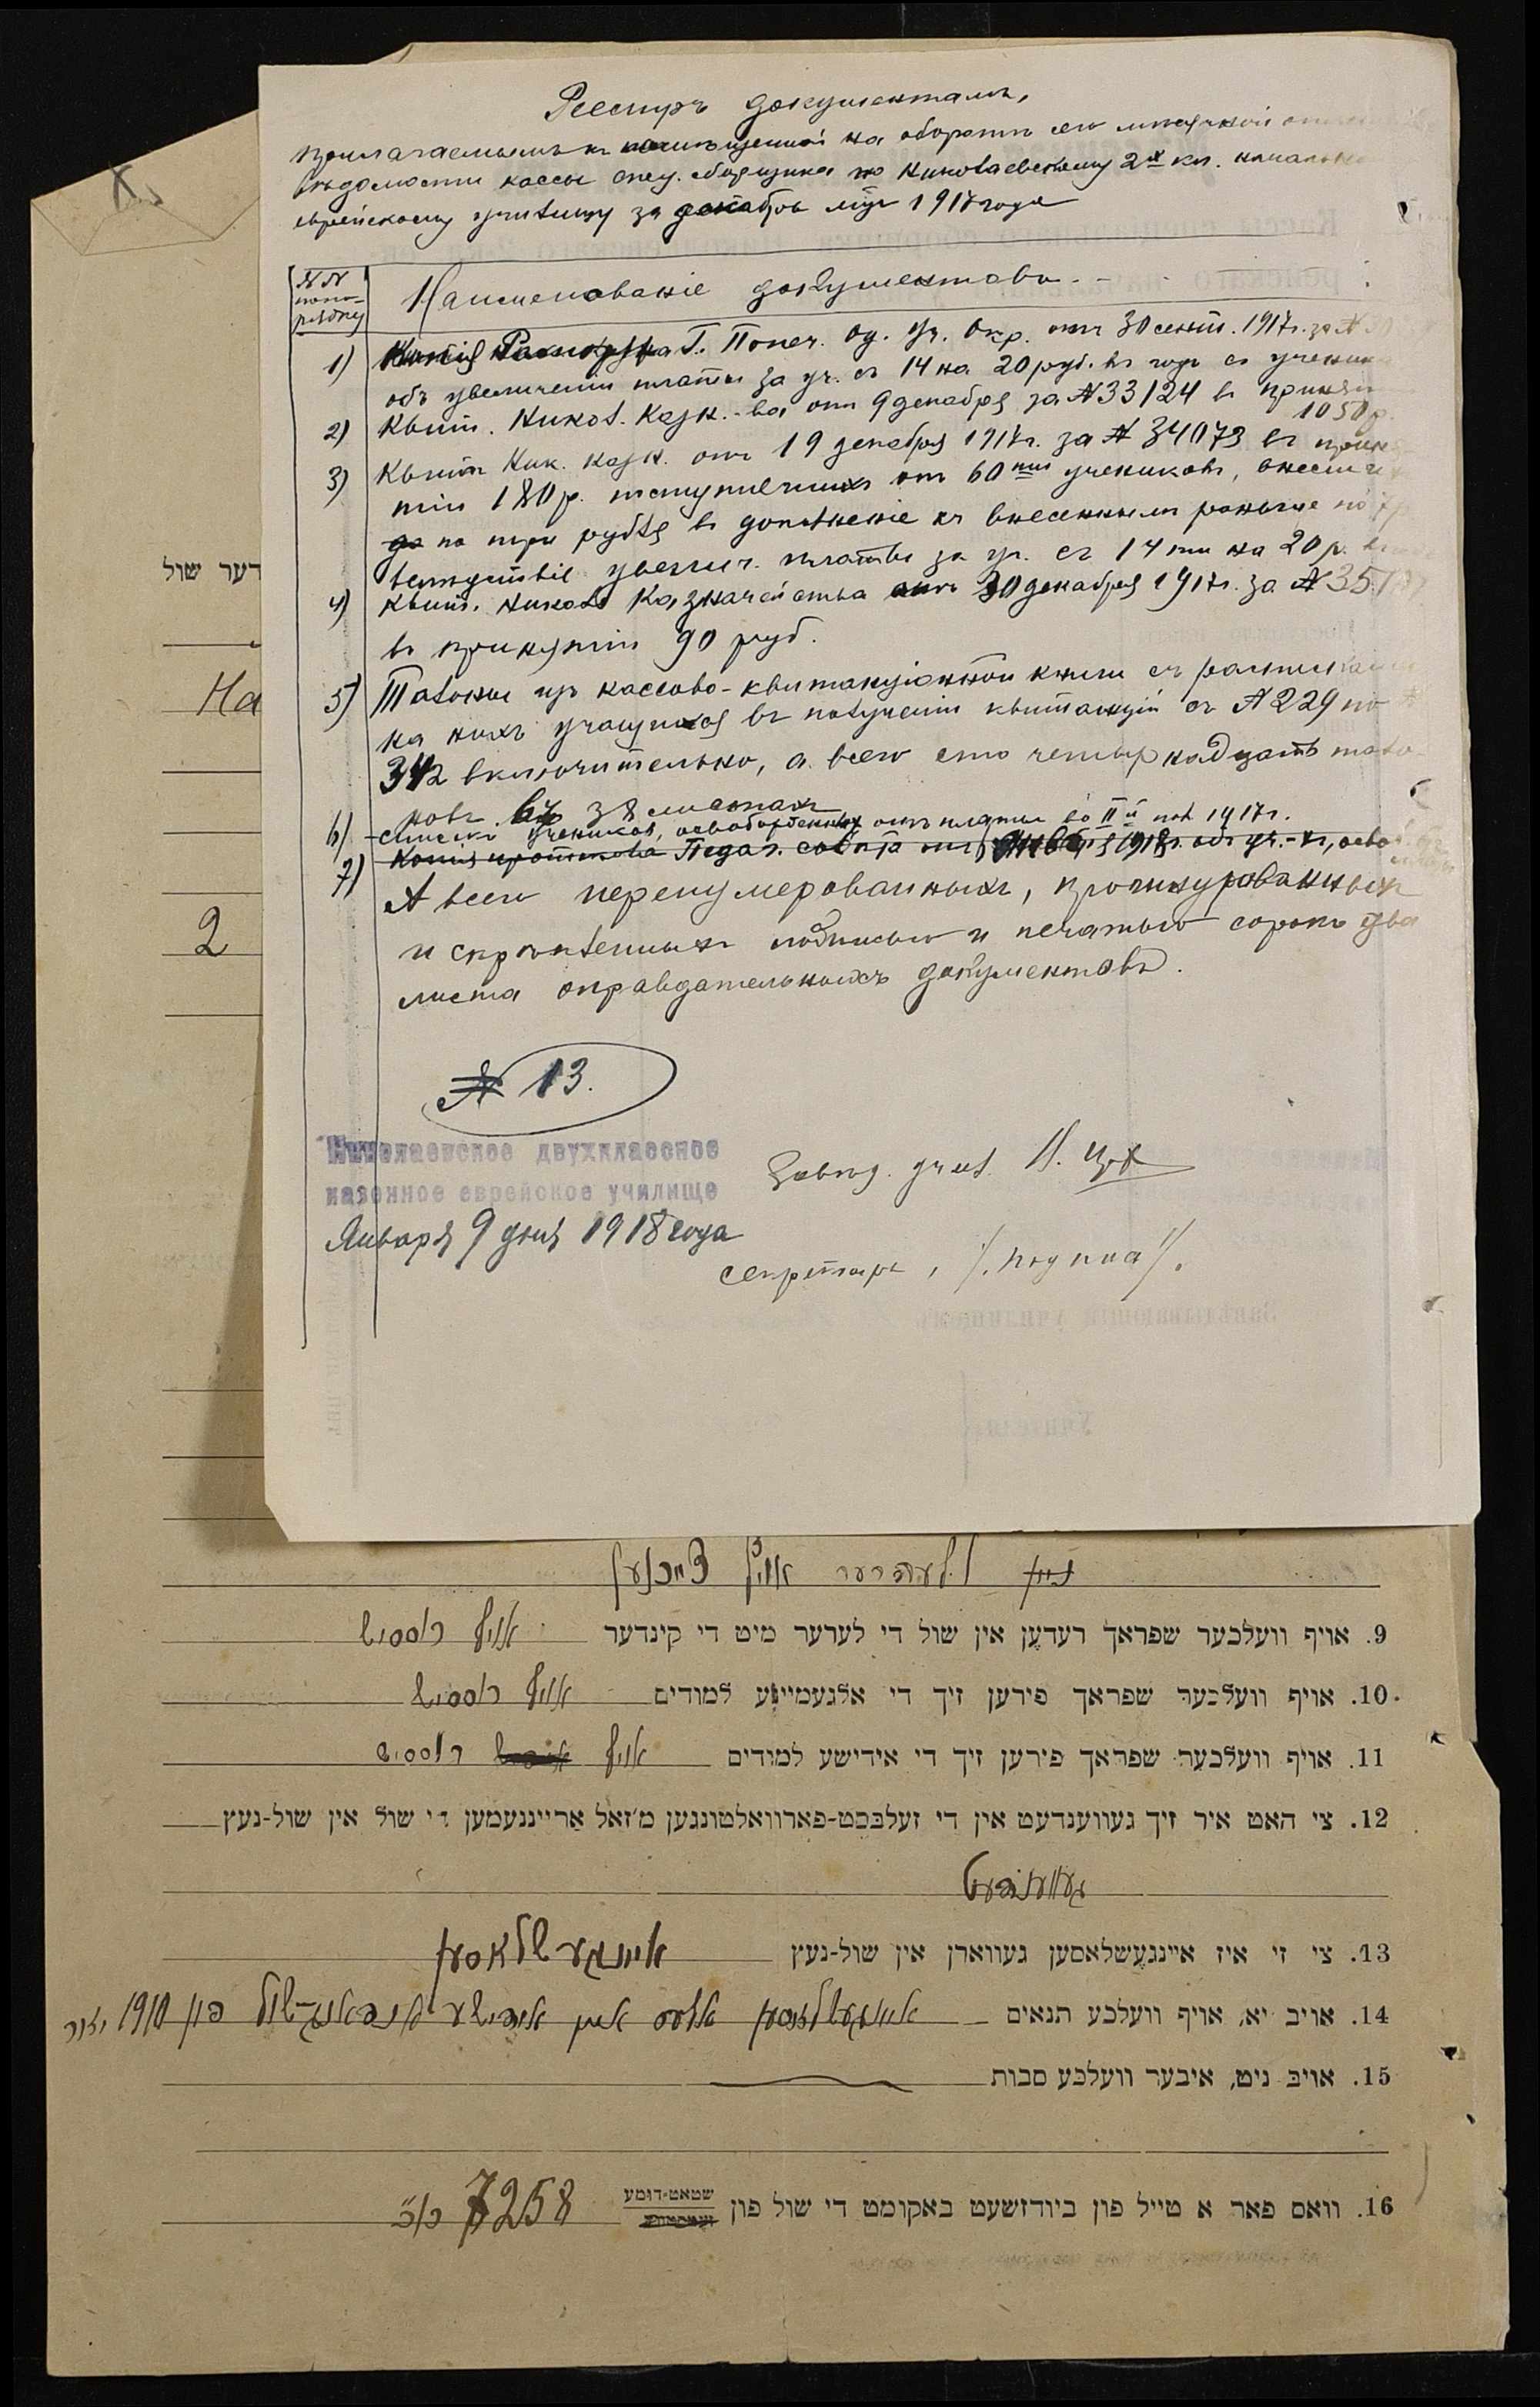 Реестръ документамъ,
прилагаемымъ къ помѣщенной на оборотѣ сего мѣсячной
вѣдомости кассы спец. сборщика по Николаевскому 2х кл. начальн
еврейскому училищу за декабрь мѣс 1917 года
№ №
попо-
рядку
Наименованіе документовъ.
1) Копія г. Попеч. Од. Уч. Окр. отъ 30 сент. 1917 г. за №
объ увеличеніи платы за уч. съ 14 на 20 руб. въ годъ съ ученика
2) Квит. Никол. Казн.-ва отъ 9 декабря за № 33124 въ принят
1050 р.
3) Квит Ник. Казн. отъ 19 декабря 1917 г. за № 34073 въ приня
тіи 180 р. поступившихъ отъ 60ти учениковъ, внесши
по три рубля въ дополненіе къ внесеннымъ раньше по 7 р
вслѣдствіе увелич. платы за уч. съ 14 ти на 20 р. въ
4) Квит. Никол Казначейства отъ 30 декабря 1917 г. за № 35
въ принятіи 90 руб.
5) Талоны изъ кассово-квитанціонной книги съ расписками
на нихъ учащихся въ полученіи квитанцій съ № 229 по №
342 включительно, а всего сто четырнадцать тало-
новъ въ 38 листахъ
6) Списокъ учениковъ, освобожденныхъ отъ платы во II й пол 1917 г.
7) Копія протокола Педаг. совѣта отъ 1918 г. объ уч.-ъ, осво
А всего перенумерованныхъ, прошнурованныхъ
и скрѣпленныхъ подписью и печатью сорокъ два
листа оправдательныхъ документовъ.
№ 13.
Николаевское двухклассное
казенное еврейское училище
Января 9 дня 1918 года
Завѣд. учил. И. Цох
Секретарь, /. Подпись /.
דער שול
На
2
לעהרער אויף צייכנען
9. אויף וועלכער שפראך רעדען אין שול די לערער מיט די קינדער אויף רוססיש
10. אויף וועלכער שפראך פירען זיך די אלגעמיינע למודים אויף רוססיש
11. אויף וועלכער שפראך פירען זיך די אידישע למודים אויף רוססיש
12. צי האט איר זיך געווענדעט אין די זעלבסט-פארוואלטונגען מ'זאל אריינגעמען די שול אין שול-נעץ
געווענדעט
13. צי זי איז איינגעשלאסען געווארן אין שול-נעץ איינגעשלאסען
14. אויב יא, אויף וועלכע תנאים איינגעשלאסען אלס אידישע פון 1910 יאהר
15. אויב ניט, איבער וועלכע סבות
16. וואס פאר א טייל פון ביודזשעט באקומט די שול פון שטאט-דומע 7258 רוב